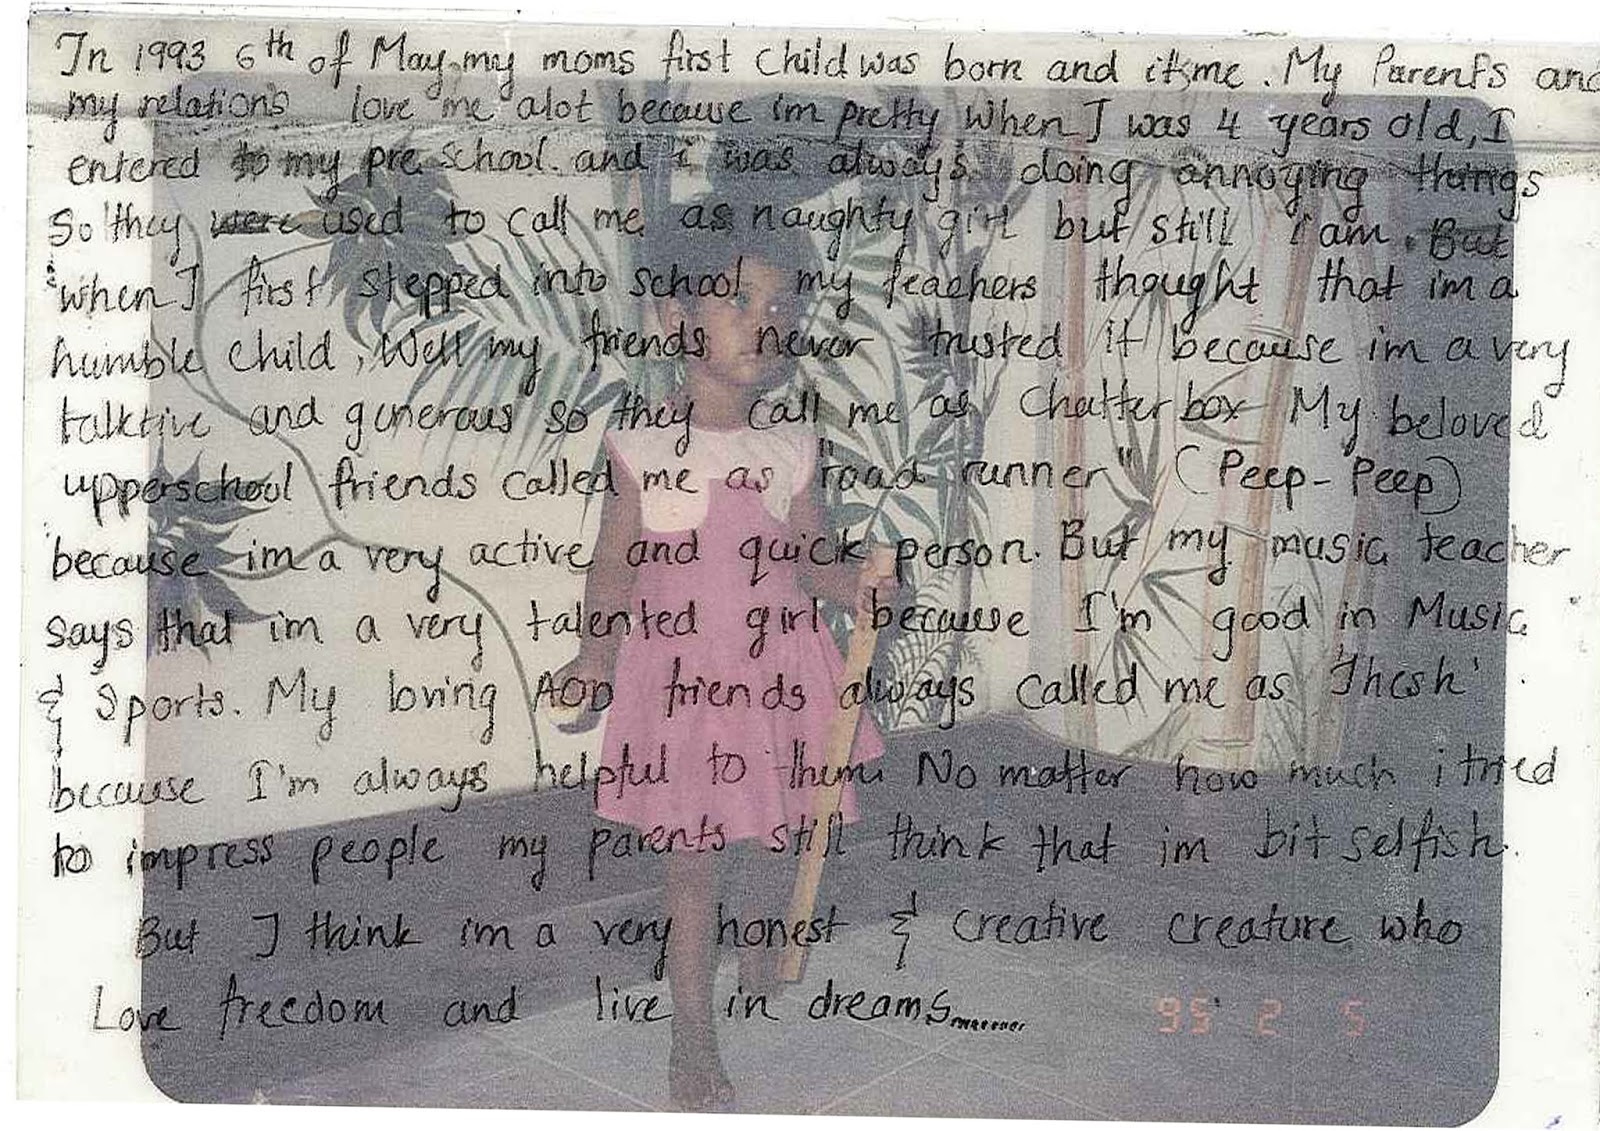 In 1993 6th of May my moms first child was born and its me. My Parents and
my relations love me alot because im pretty When I was 4 years old, I
entered to my pre school. and i was always doing annoying things
So they were used to call me as naughty girl but still i am. But
when I first stepped into school my teachers thought that im a
humble child, Well my friends never trusted it because im a very
talktive and generous so they call me as Chatter box My beloved
upperschool friends called me as "road runner" (Peep-Peep)
because im a very active and quick person. But my music teacher
says that im a very talented girl because I'm good in Music
& Sports. My loving AOD friends always called me as 'Thesh'
because I'm always helpful to them. No matter how much i tried
to impress people my parents still think that im bit selfish.
But I think im a very honest & creative creature who
Love freedom and live in dreams........
95 2 5